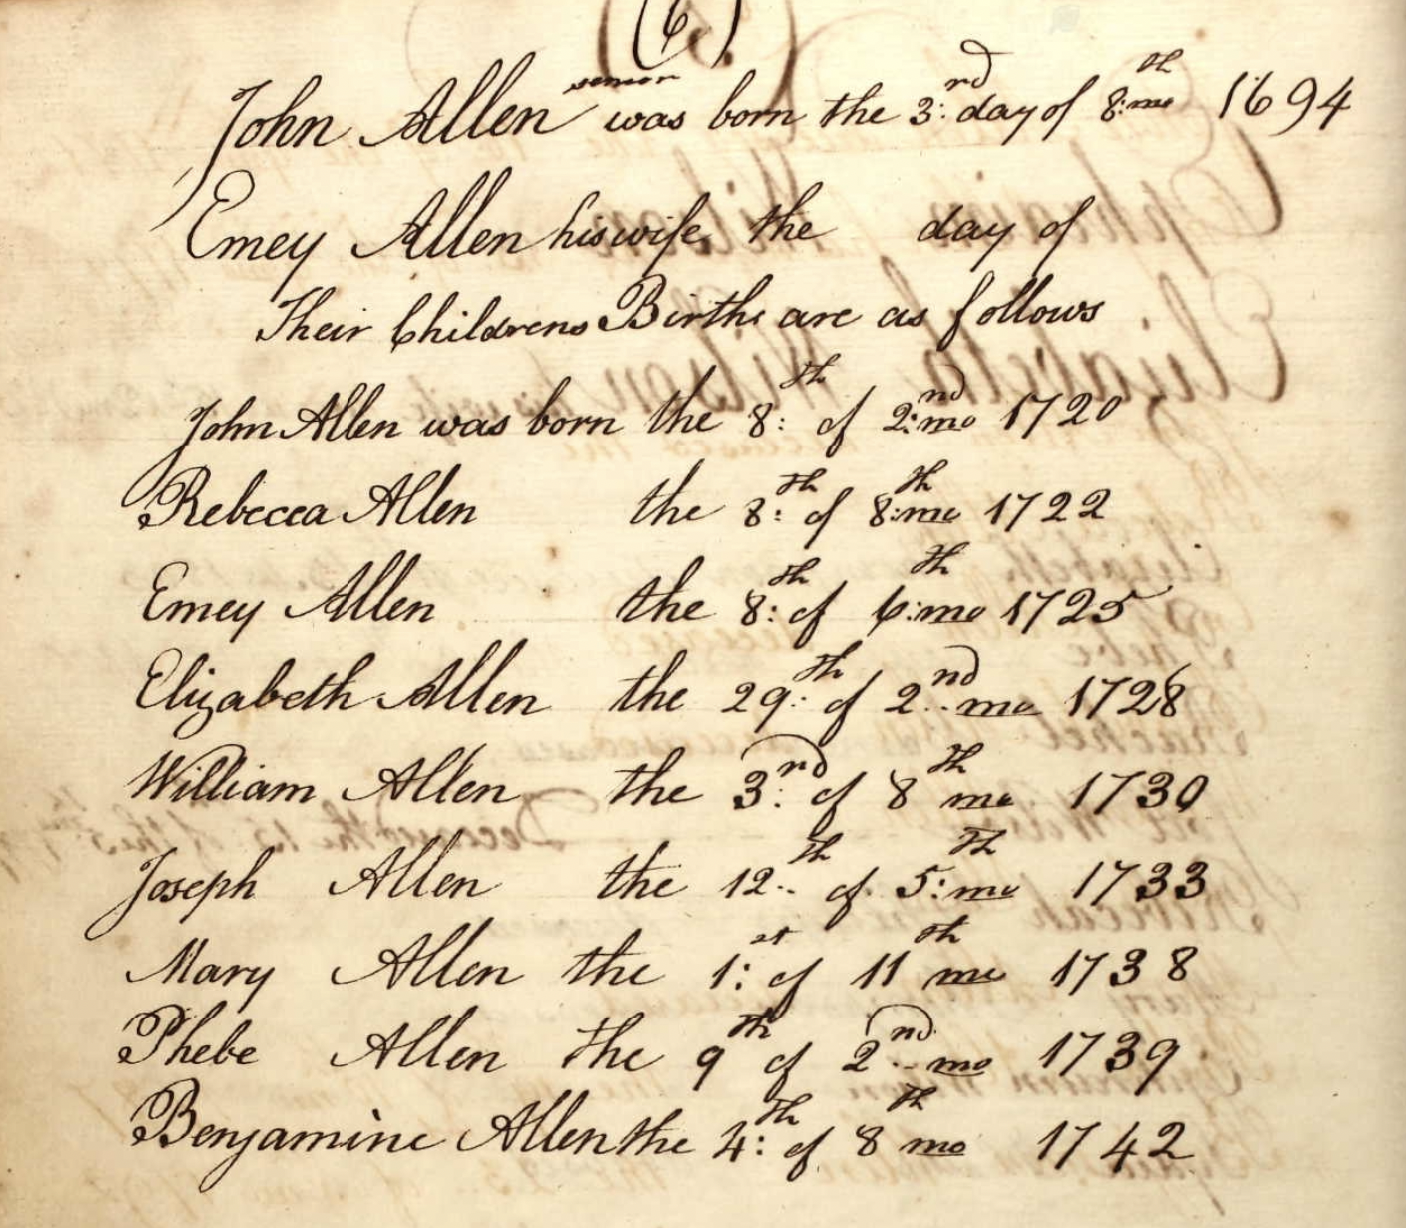 (6)
John Allen senior was born the 3:rd day of 8:th mo 1694
Emey Allen his wife the day of
Their Childrens Births are as follows
John Allen was born the 8:th of 2:nd mo 1720
Rebecca Allen the 8:th of 8:th mo 1722
Emey Allen the 8:th of 6:th mo 1725
Elizabeth Allen the 29:th of 2..nd mo 1728
William Allen the 3:rd of 8th mo 1730
Joseph Allen the 12..th of 5:th mo 1733
Mary Allen the 1:st of 11th mo 1738
Phebe Allen the 9th of 2..nd mo 1739
Benjamine Allen the 4:th of 8th mo 1742